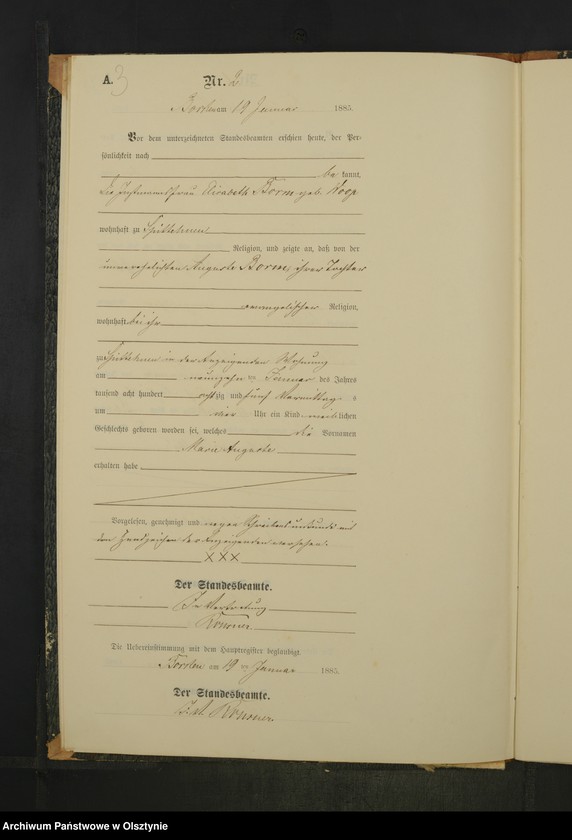 A. 3
Nr. 2
am 19 Januar 1885.
Vor dem unterzeichneten Standesbeamten erschien heute, der Per-
sönlichkeit nach
be kannt,
die Instmannsfrau Elisabeth Borm geb. Hoop
wohnhaft zu Spittehnen
Religion, und zeigte an, daß von der
unverehelichten Auguste Borm, ihrer Tochter
evangelischer Religion,
wohnhaft bei ihr
zu Spittehnen in der Anzeigenden Wohnung
am neunzehn ten Januar des Jahres
tausend acht hundert achtzig und fünf Vormittag s
um vier Uhr ein Kind weiblichen
Geschlechts geboren worden sei, welches die Vornamen
Marie Auguste
erhalten habe
Vorgelesen, genehmigt und wegen Schreibensunkunde mit
den Handzeichen der Anzeigenden versehen.
XXX
Der Standesbeamte.
In Vertretung
Die Uebereinstimmung mit dem Hauptregister beglaubigt.
am 19 ten Januar 1885.
Der Standesbeamte.
Archiwum Państwowe w Olsztynie